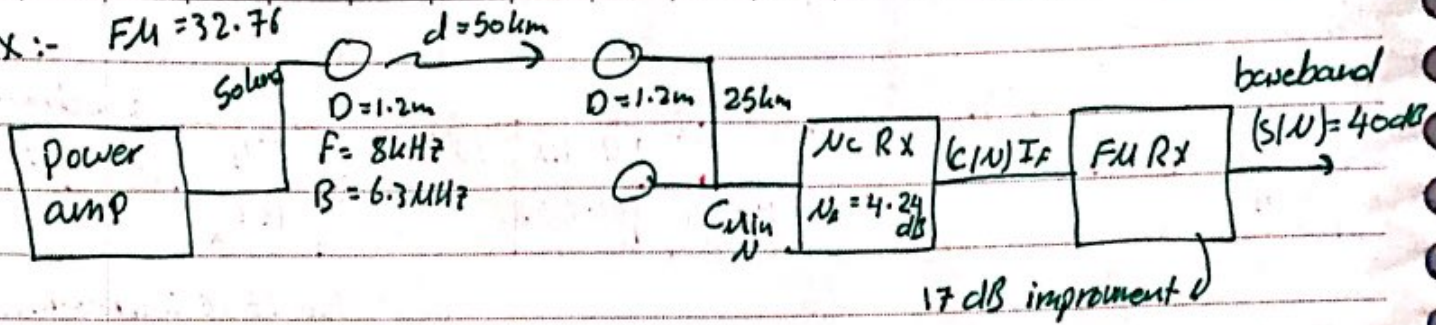 x :- FM = 32.76
d = 50km
50km
D = 1.2m
F = 8kHz
B = 6.3MHz
Power
amp
D = 1.2m
25km
Cmin
N
Nc Rx
NA = 4.24
dB
(C/N) IF
FM RX
baseband
(S/N) = 40dB
17 dB improment